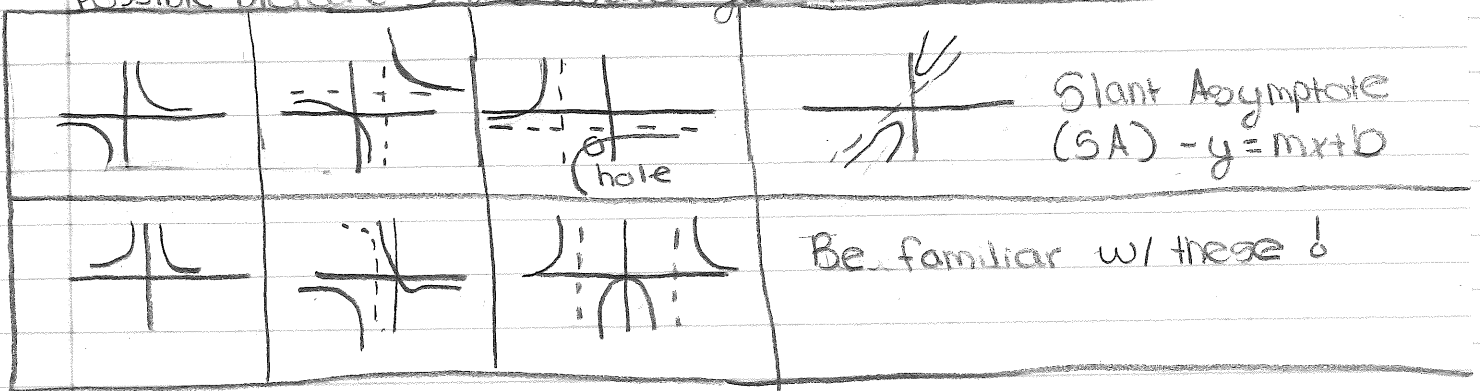 hole
Slant Asymptote
(SA) - y = mx+b
Be familiar w/ these !